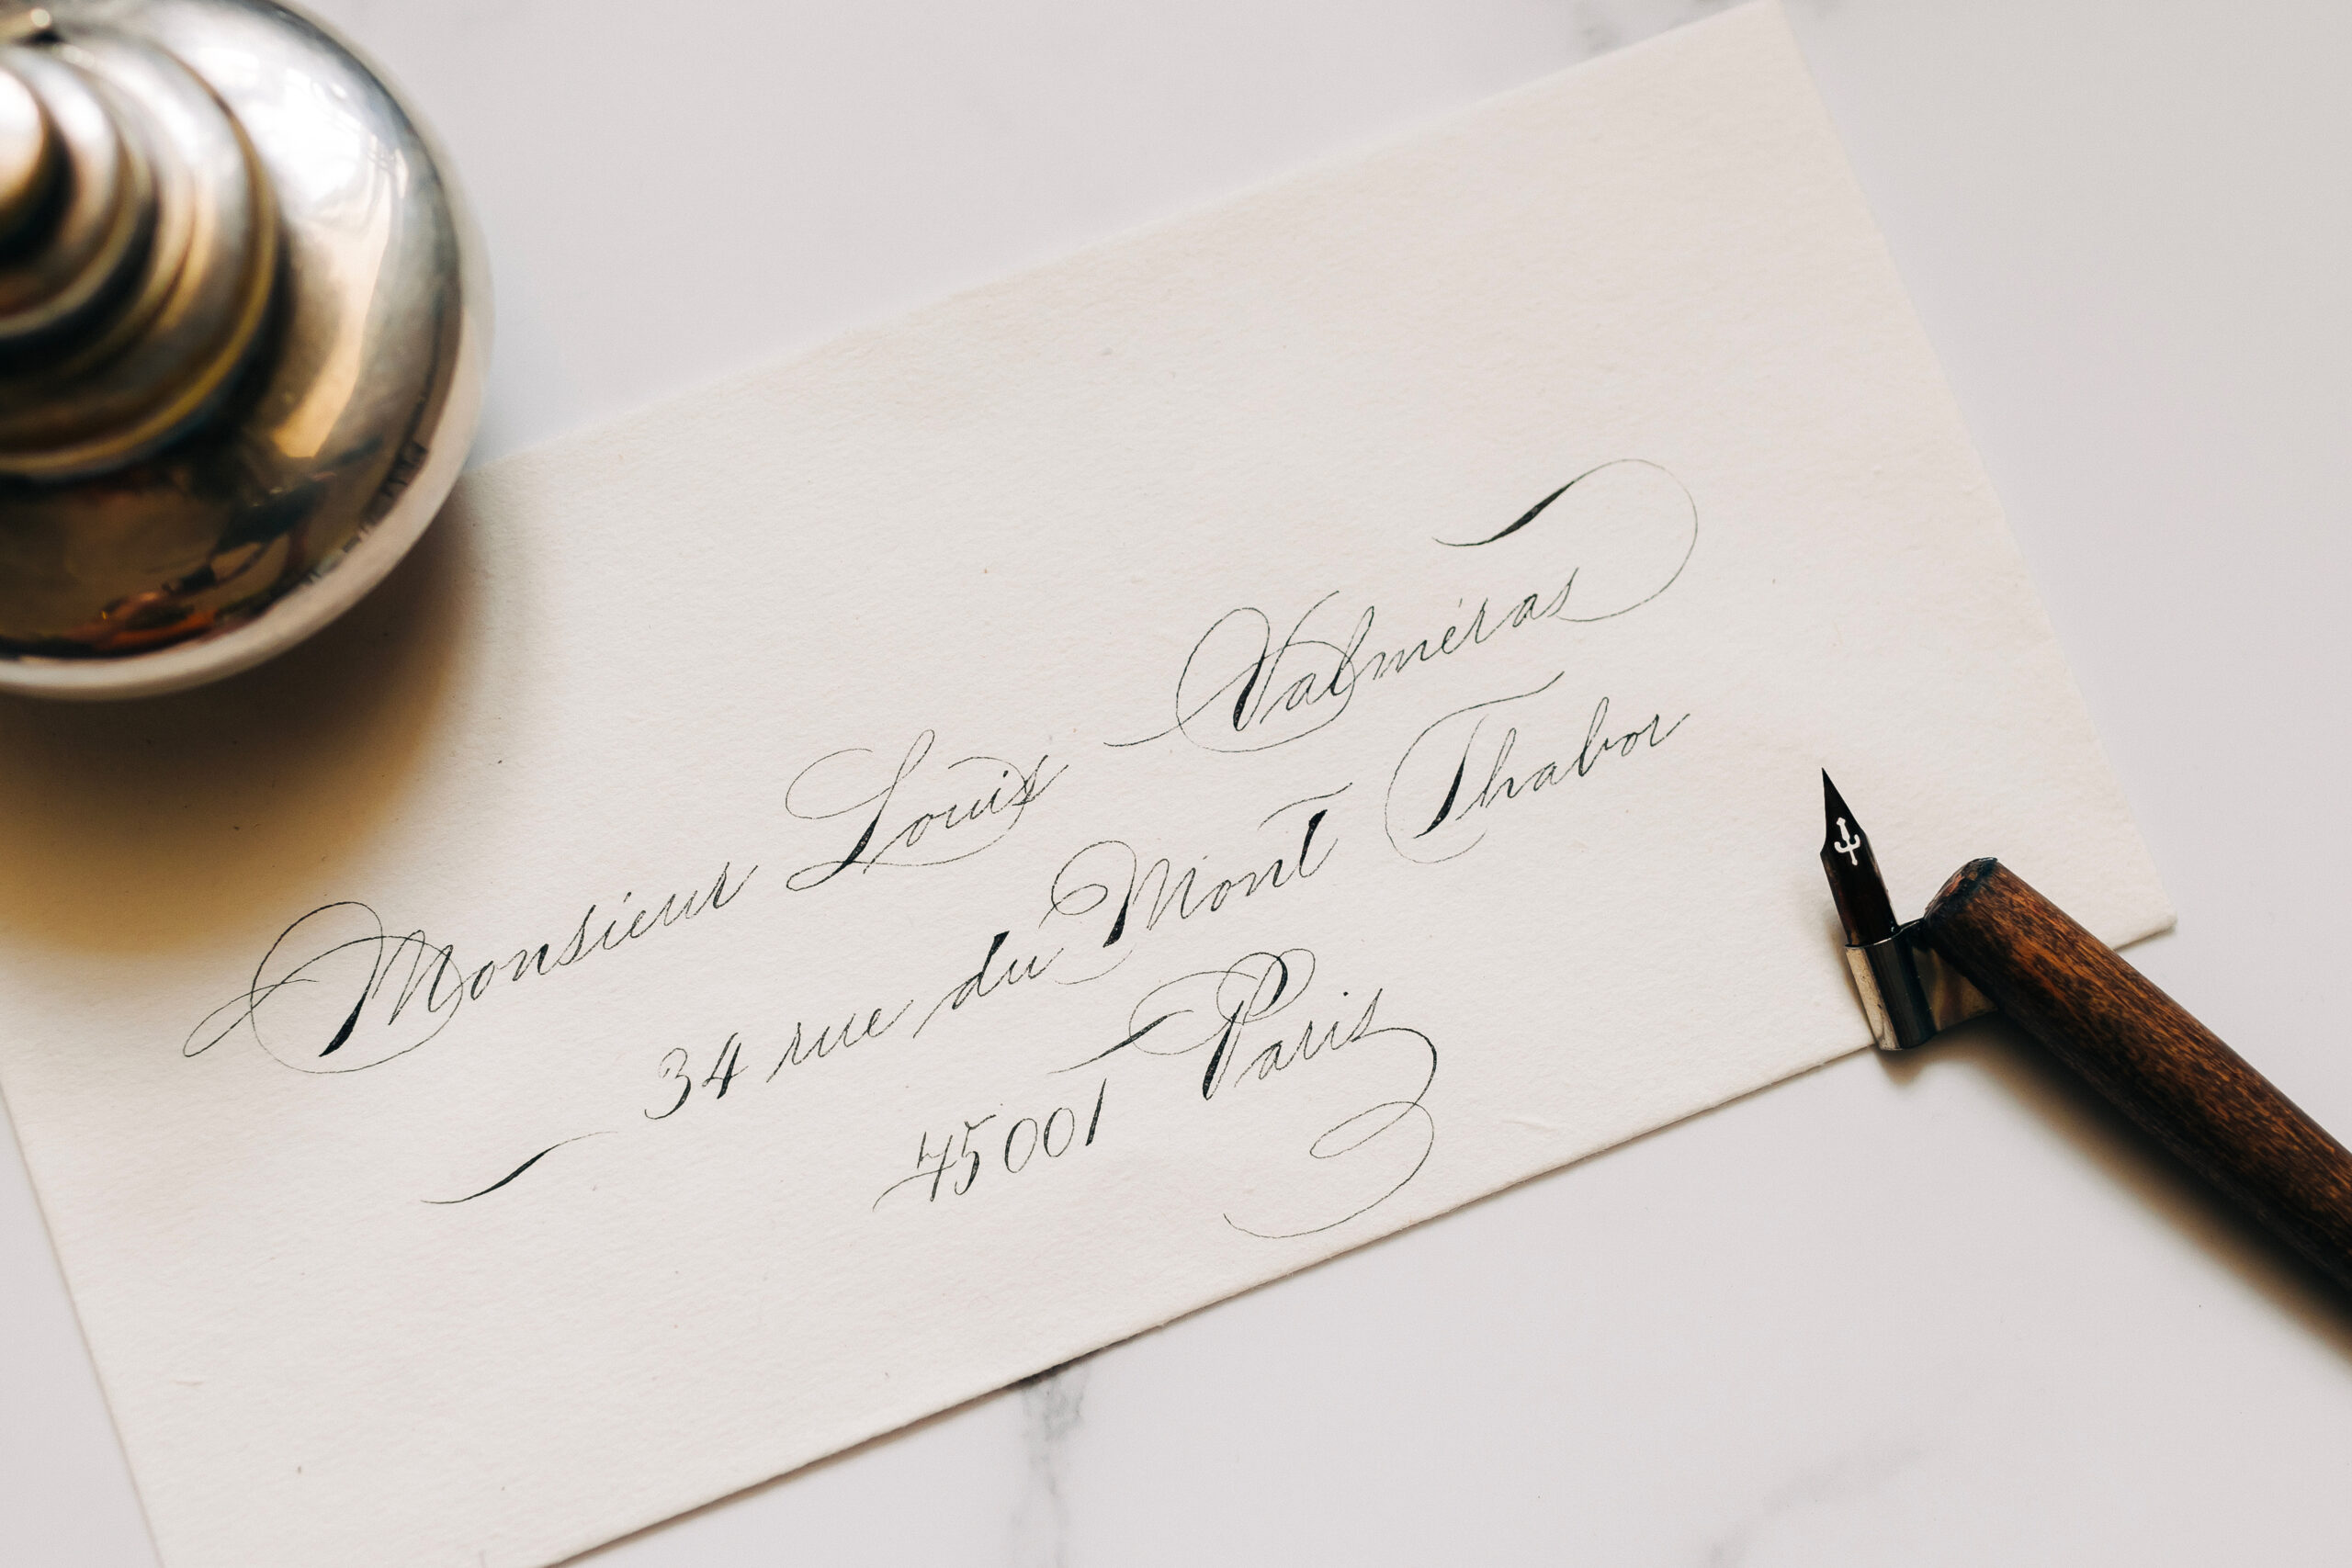 Monsieur Louis Valméras
34 rue du Mont Thabor
45001 Paris